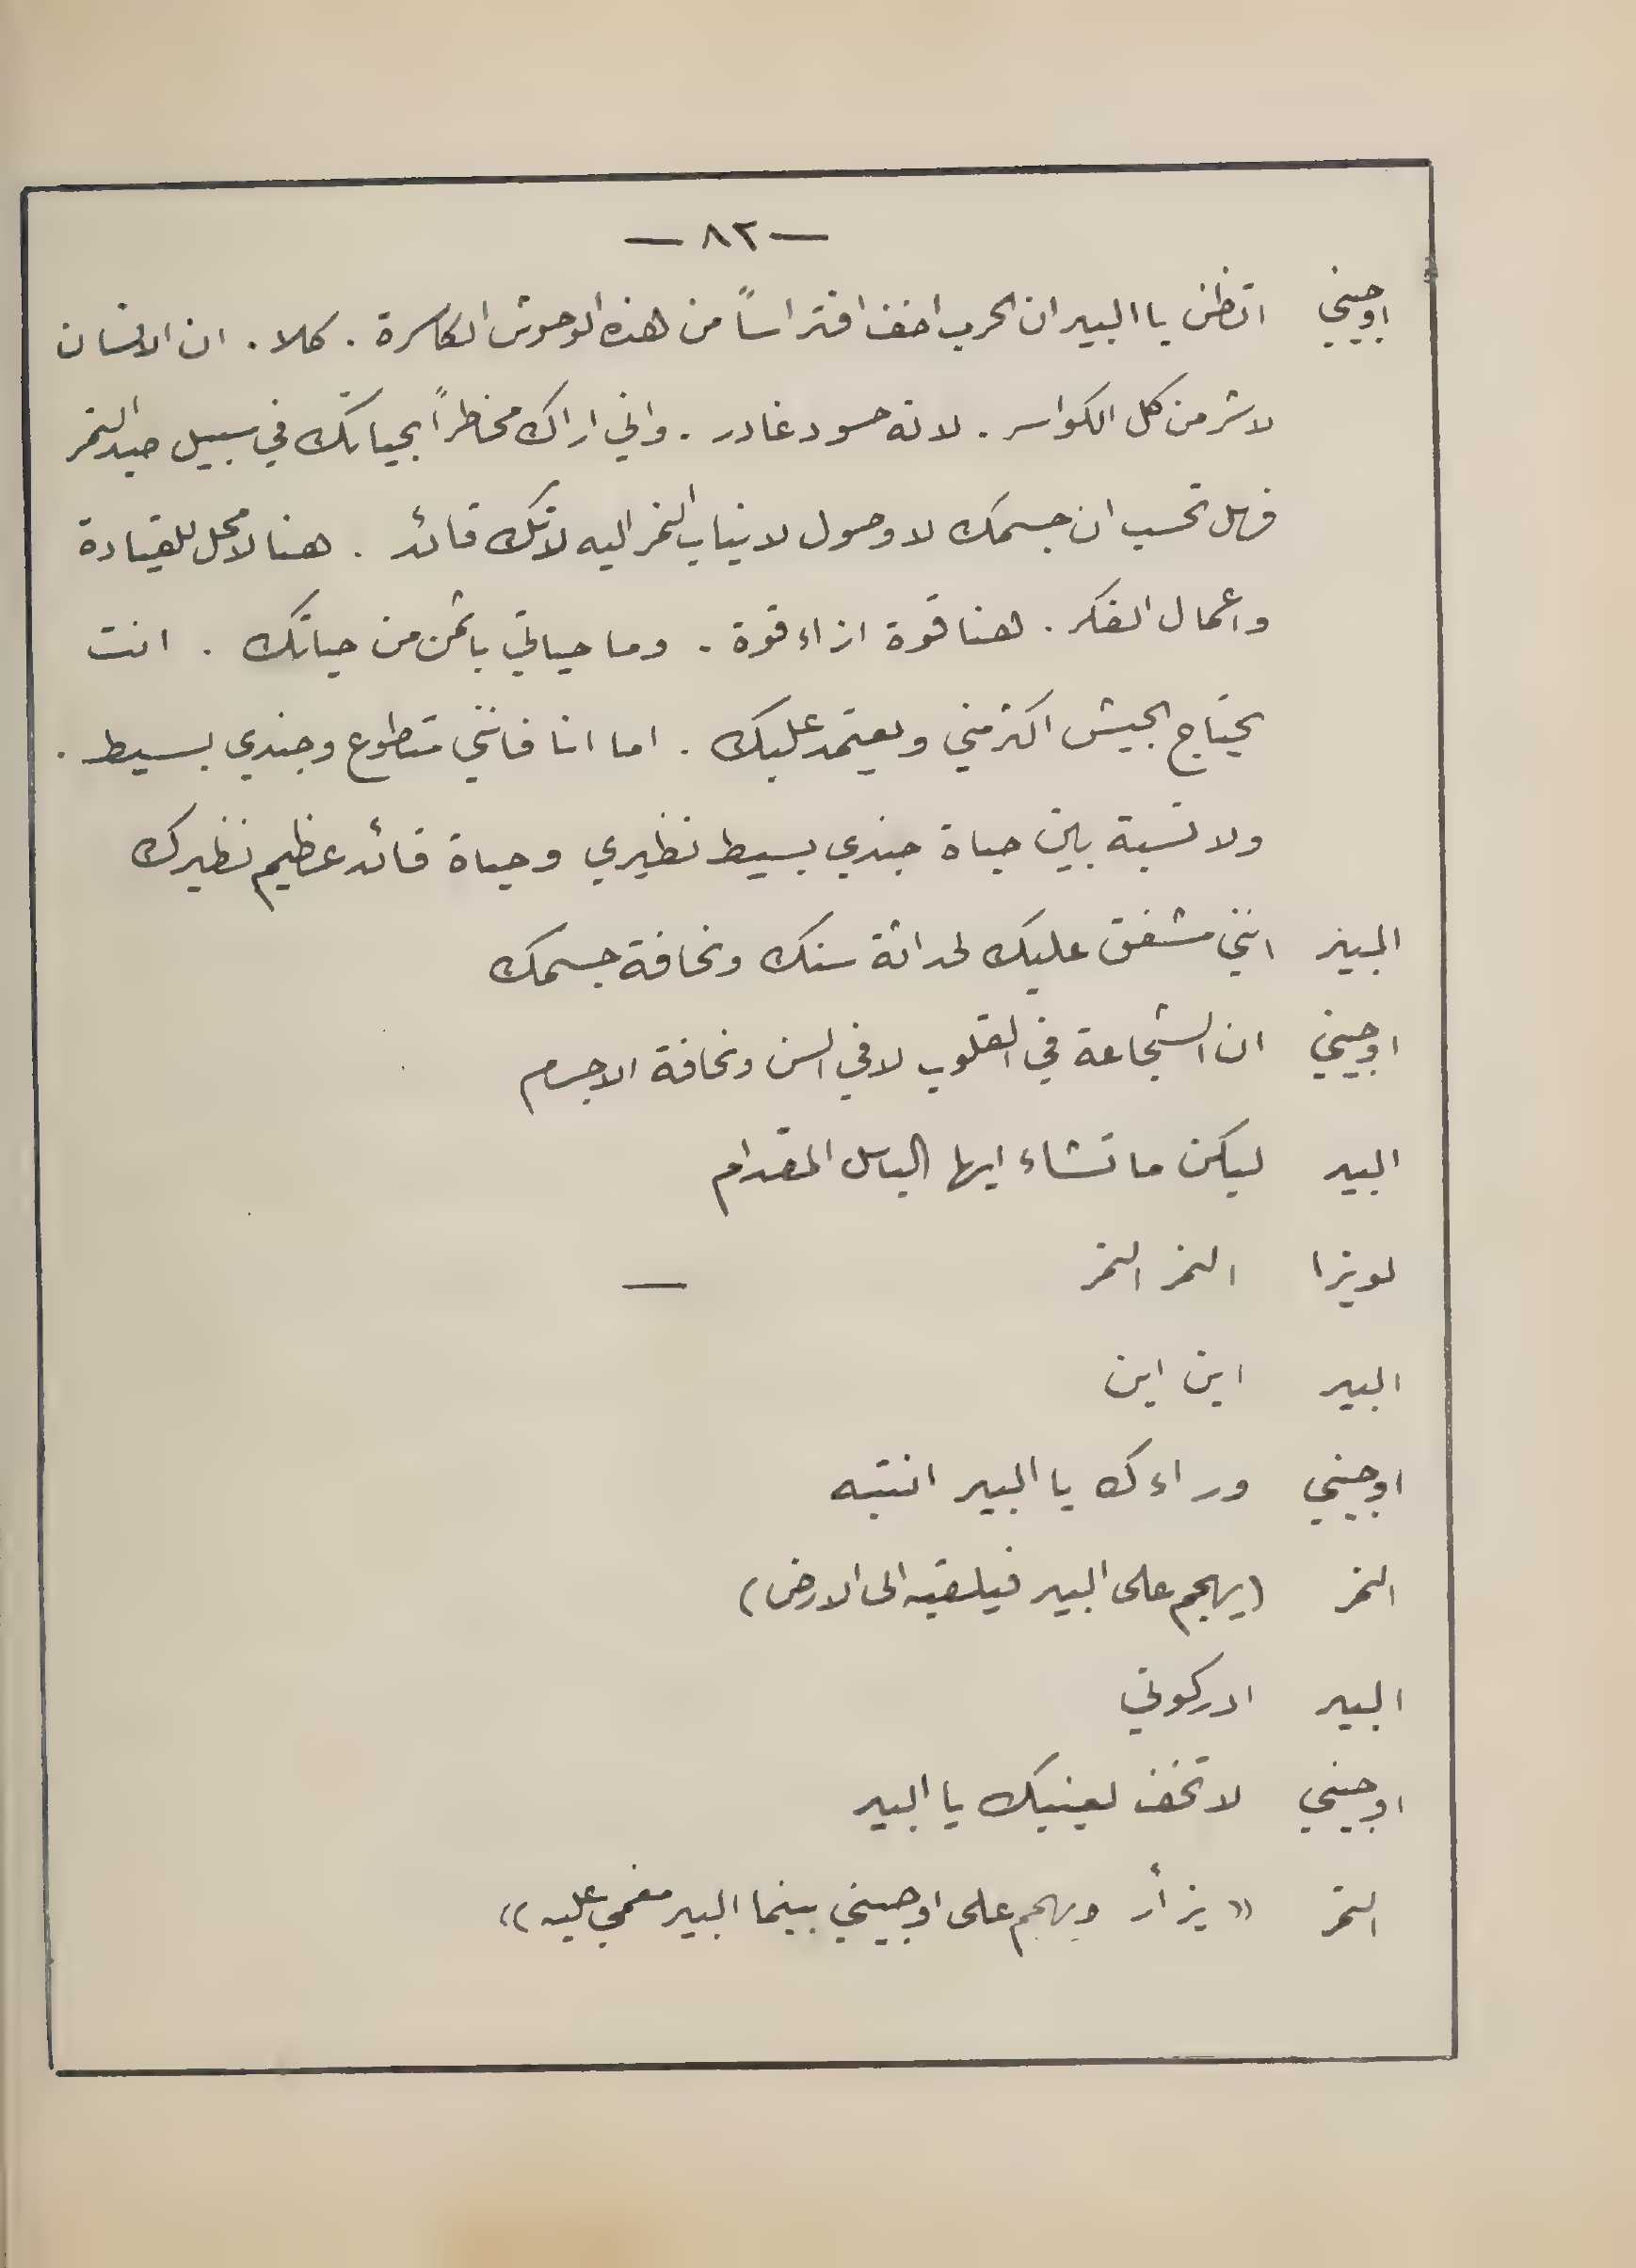 — ٨٢ —
اوجيني اتظن يا البير ان الحرب اخف افتراساً من هذه الوحوش الكاسرة . كلا . ان الانسان
لاشر من كل الكواسر . لانه حسود غادر . واني اراك مخاطراً بحياتك في سبيل صيد النمر
فهل تحسب ان جسمك لا وصول لانياب النمر اليه لانك قائد . هنا لا محل للقيادة
واعمال الفكر . هنا قوة ازاء قوة . وما حياتي باثمن من حياتك . انت
يحتاج الجيش اكثر مني ويعتمد عليك . اما انا فانني متطوع وجندي بسيط .
ولا نسبة بين حياة جندي بسيط نظيري وحياة قائد عظيم نظيرك
البير انني مشفق عليك لحداثة سنك ونحافة جسمك
اوجيني ان الشجاعة في القلوب لا في السن ونحافة الاجسام
البير ليكن ما تشاء ايها الباسل المقدام
لويزا النمر النمر —
البير اين اين
اوجيني وراءك يا البير انتبه
النمر (يهجم على البير فيلقيه الى الارض)
البير ادركوني
اوجيني لا تخف لعينيك يا البير
النمر « يزأر ويهجم على اوجيني بينما البير مغمي عليه »